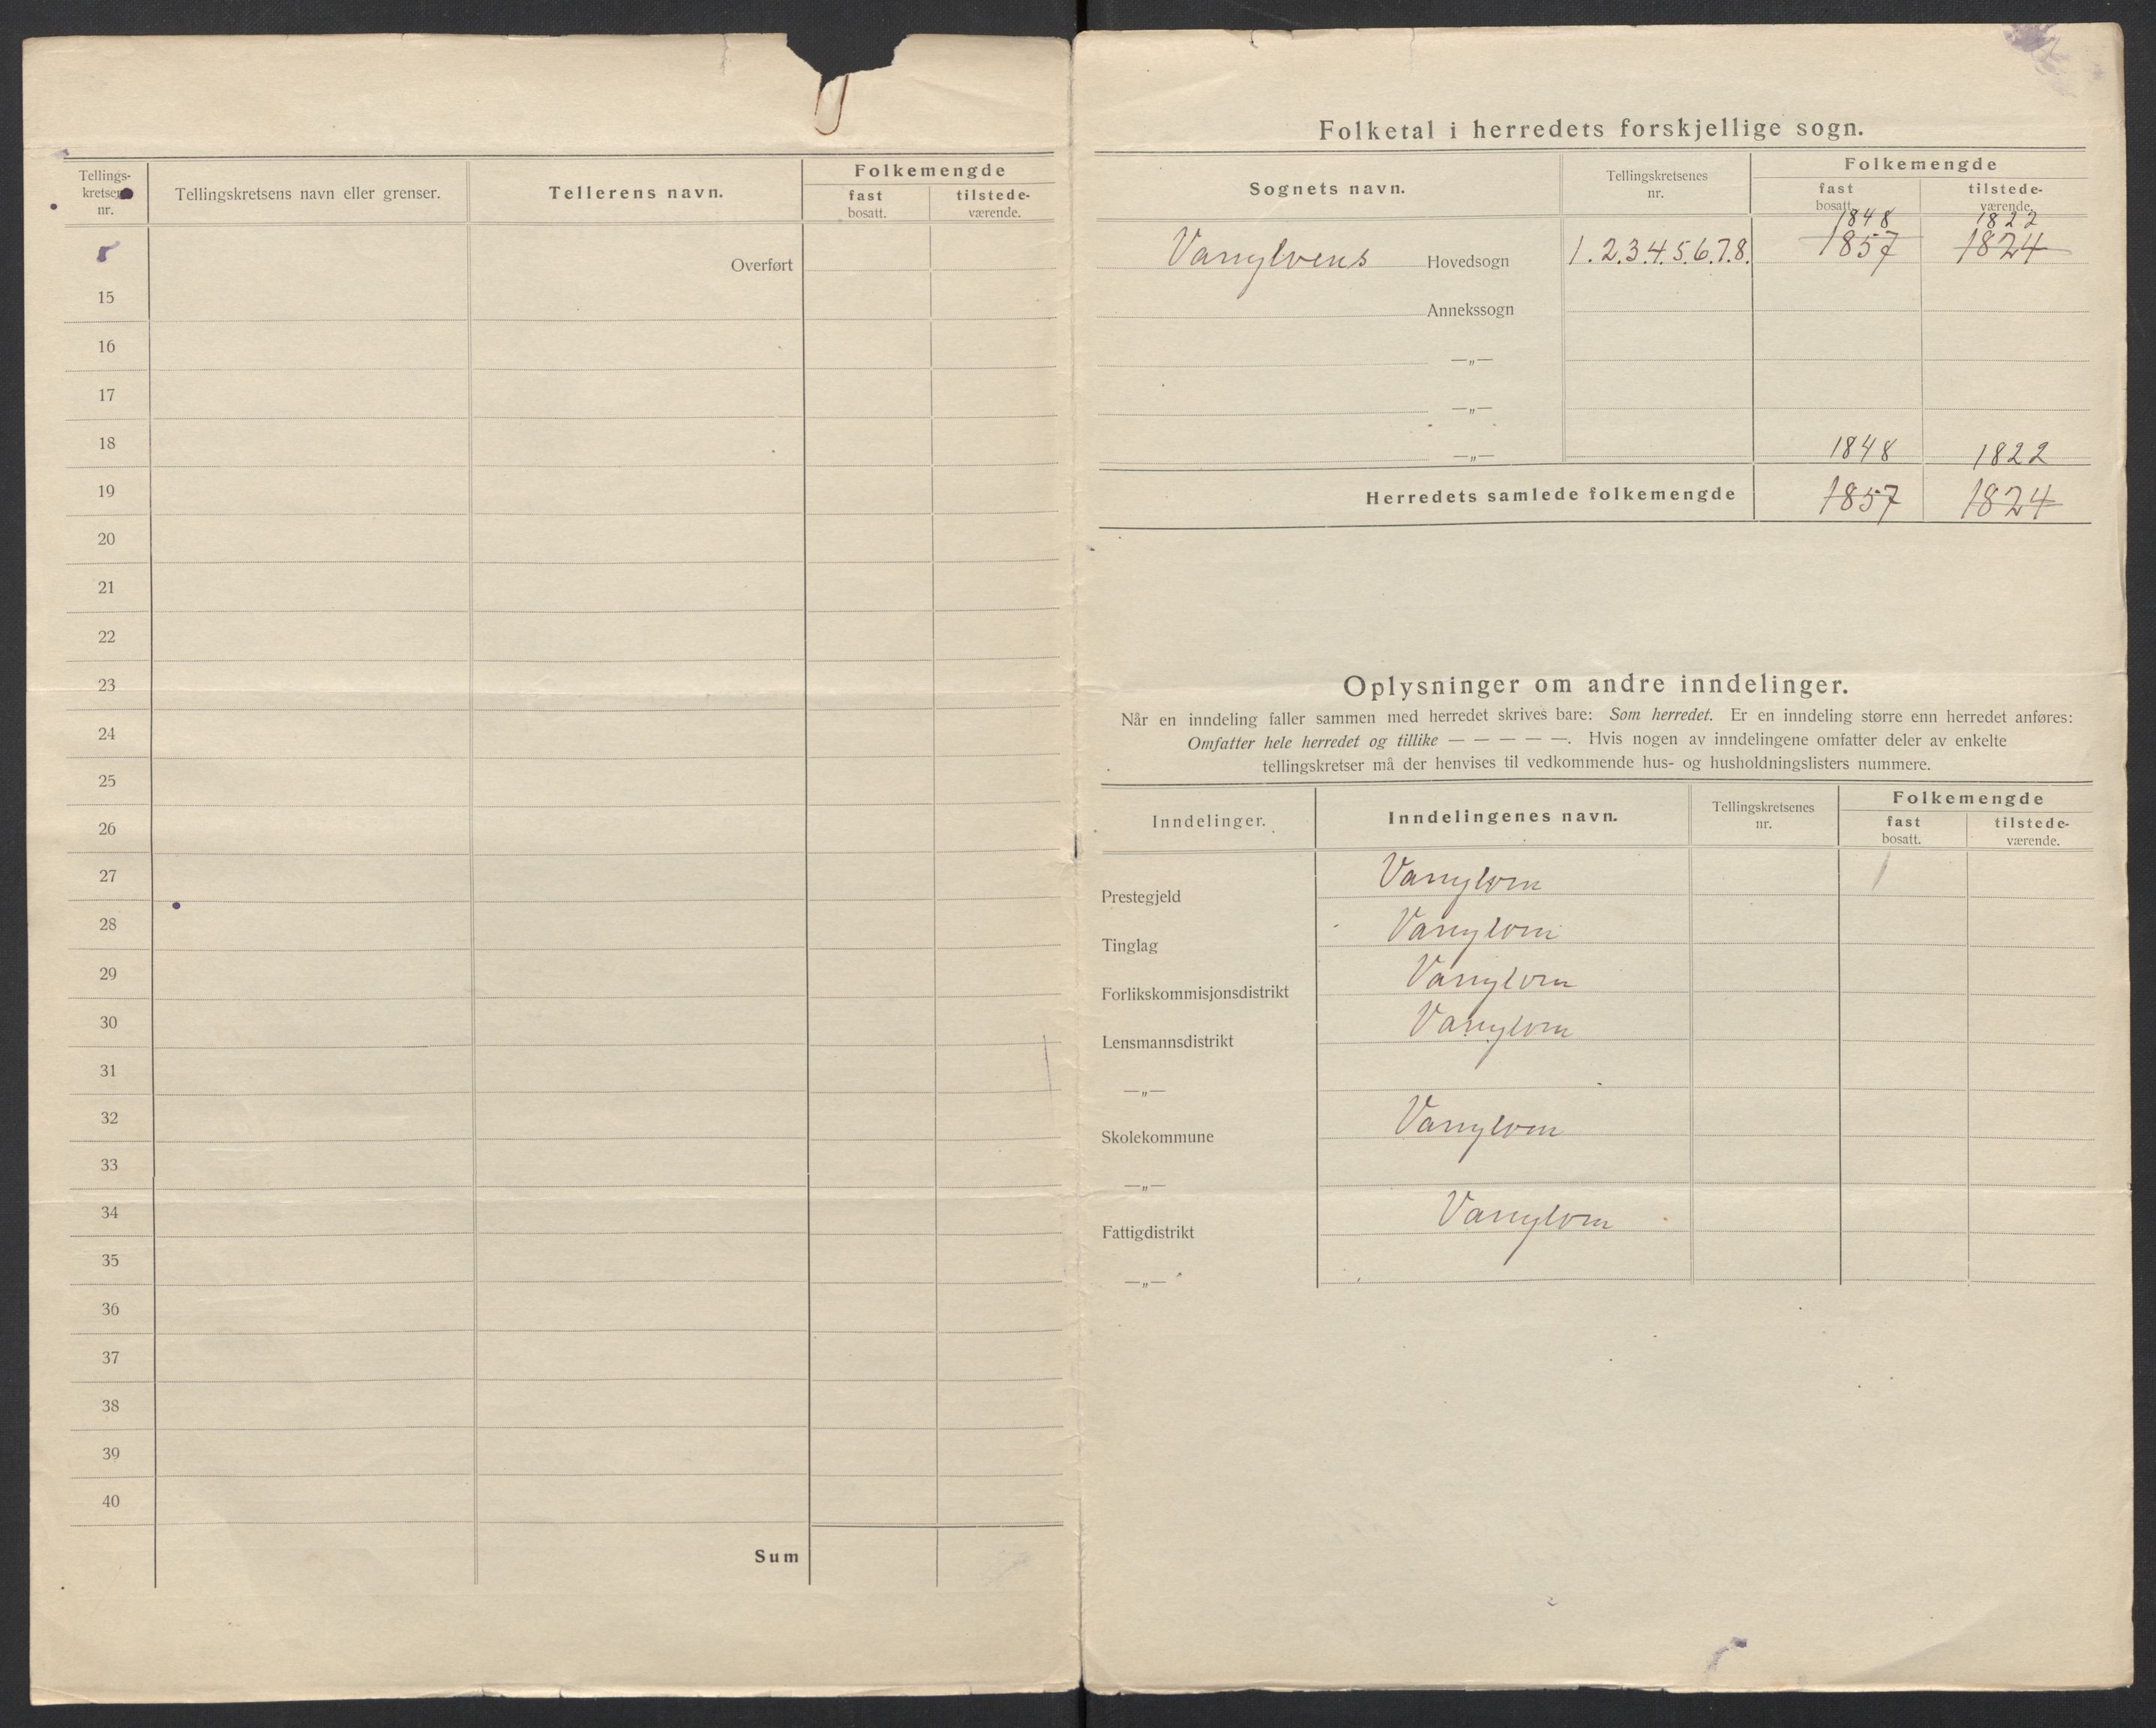 Tellings-
kretsenes
nr.
Tellingskretsens navn eller grenser.
Tellerens navn.
Folkemengde
fast
bosatt.
tilstede-
værende.
Overført
15
16
17
18
19
20
21
22
23
24
25
26
27
28
29
30
31
32
33
34
35
36
37
38
39
40
Sum
Folketal i herredets forskjellige sogn.
Sognets navn.
Tellingskretsenes
nr.
Folkemengde
fast
bosatt.
tilstede-
værende.
1848 1822
Vanylvens Hovedsogn 1.2.3.4.5.6.7.8. 1857 1824
Annekssogn
—„—
—„—
1848 1822
—„—
Herredets samlede folkemengde 1857 1824
Oplysninger om andre inndelinger.
Når en inndeling faller sammen med herredet skrives bare: Som herredet. Er en inndeling større enn herredet anføres:
Omfatter hele herredet og tillike — — — — —. Hvis nogen av inndelingene omfatter deler av enkelte
tellingskretser må der henvises til vedkommende hus- og husholdningslisters nummere.
Inndelinger.
Inndelingenes navn.
Tellingskretsenes
nr.
Folkemengde
fast
bosatt.
tilstede-
værende.
Prestegjeld Vanylven
Tinglag Vanylven
Forlikskommisjonsdistrikt Vanylven
Lensmannsdistrikt Vanylven
—„—
Skolekommune Vanylven
—„—
Fattigdistrikt Vanylven
—„—